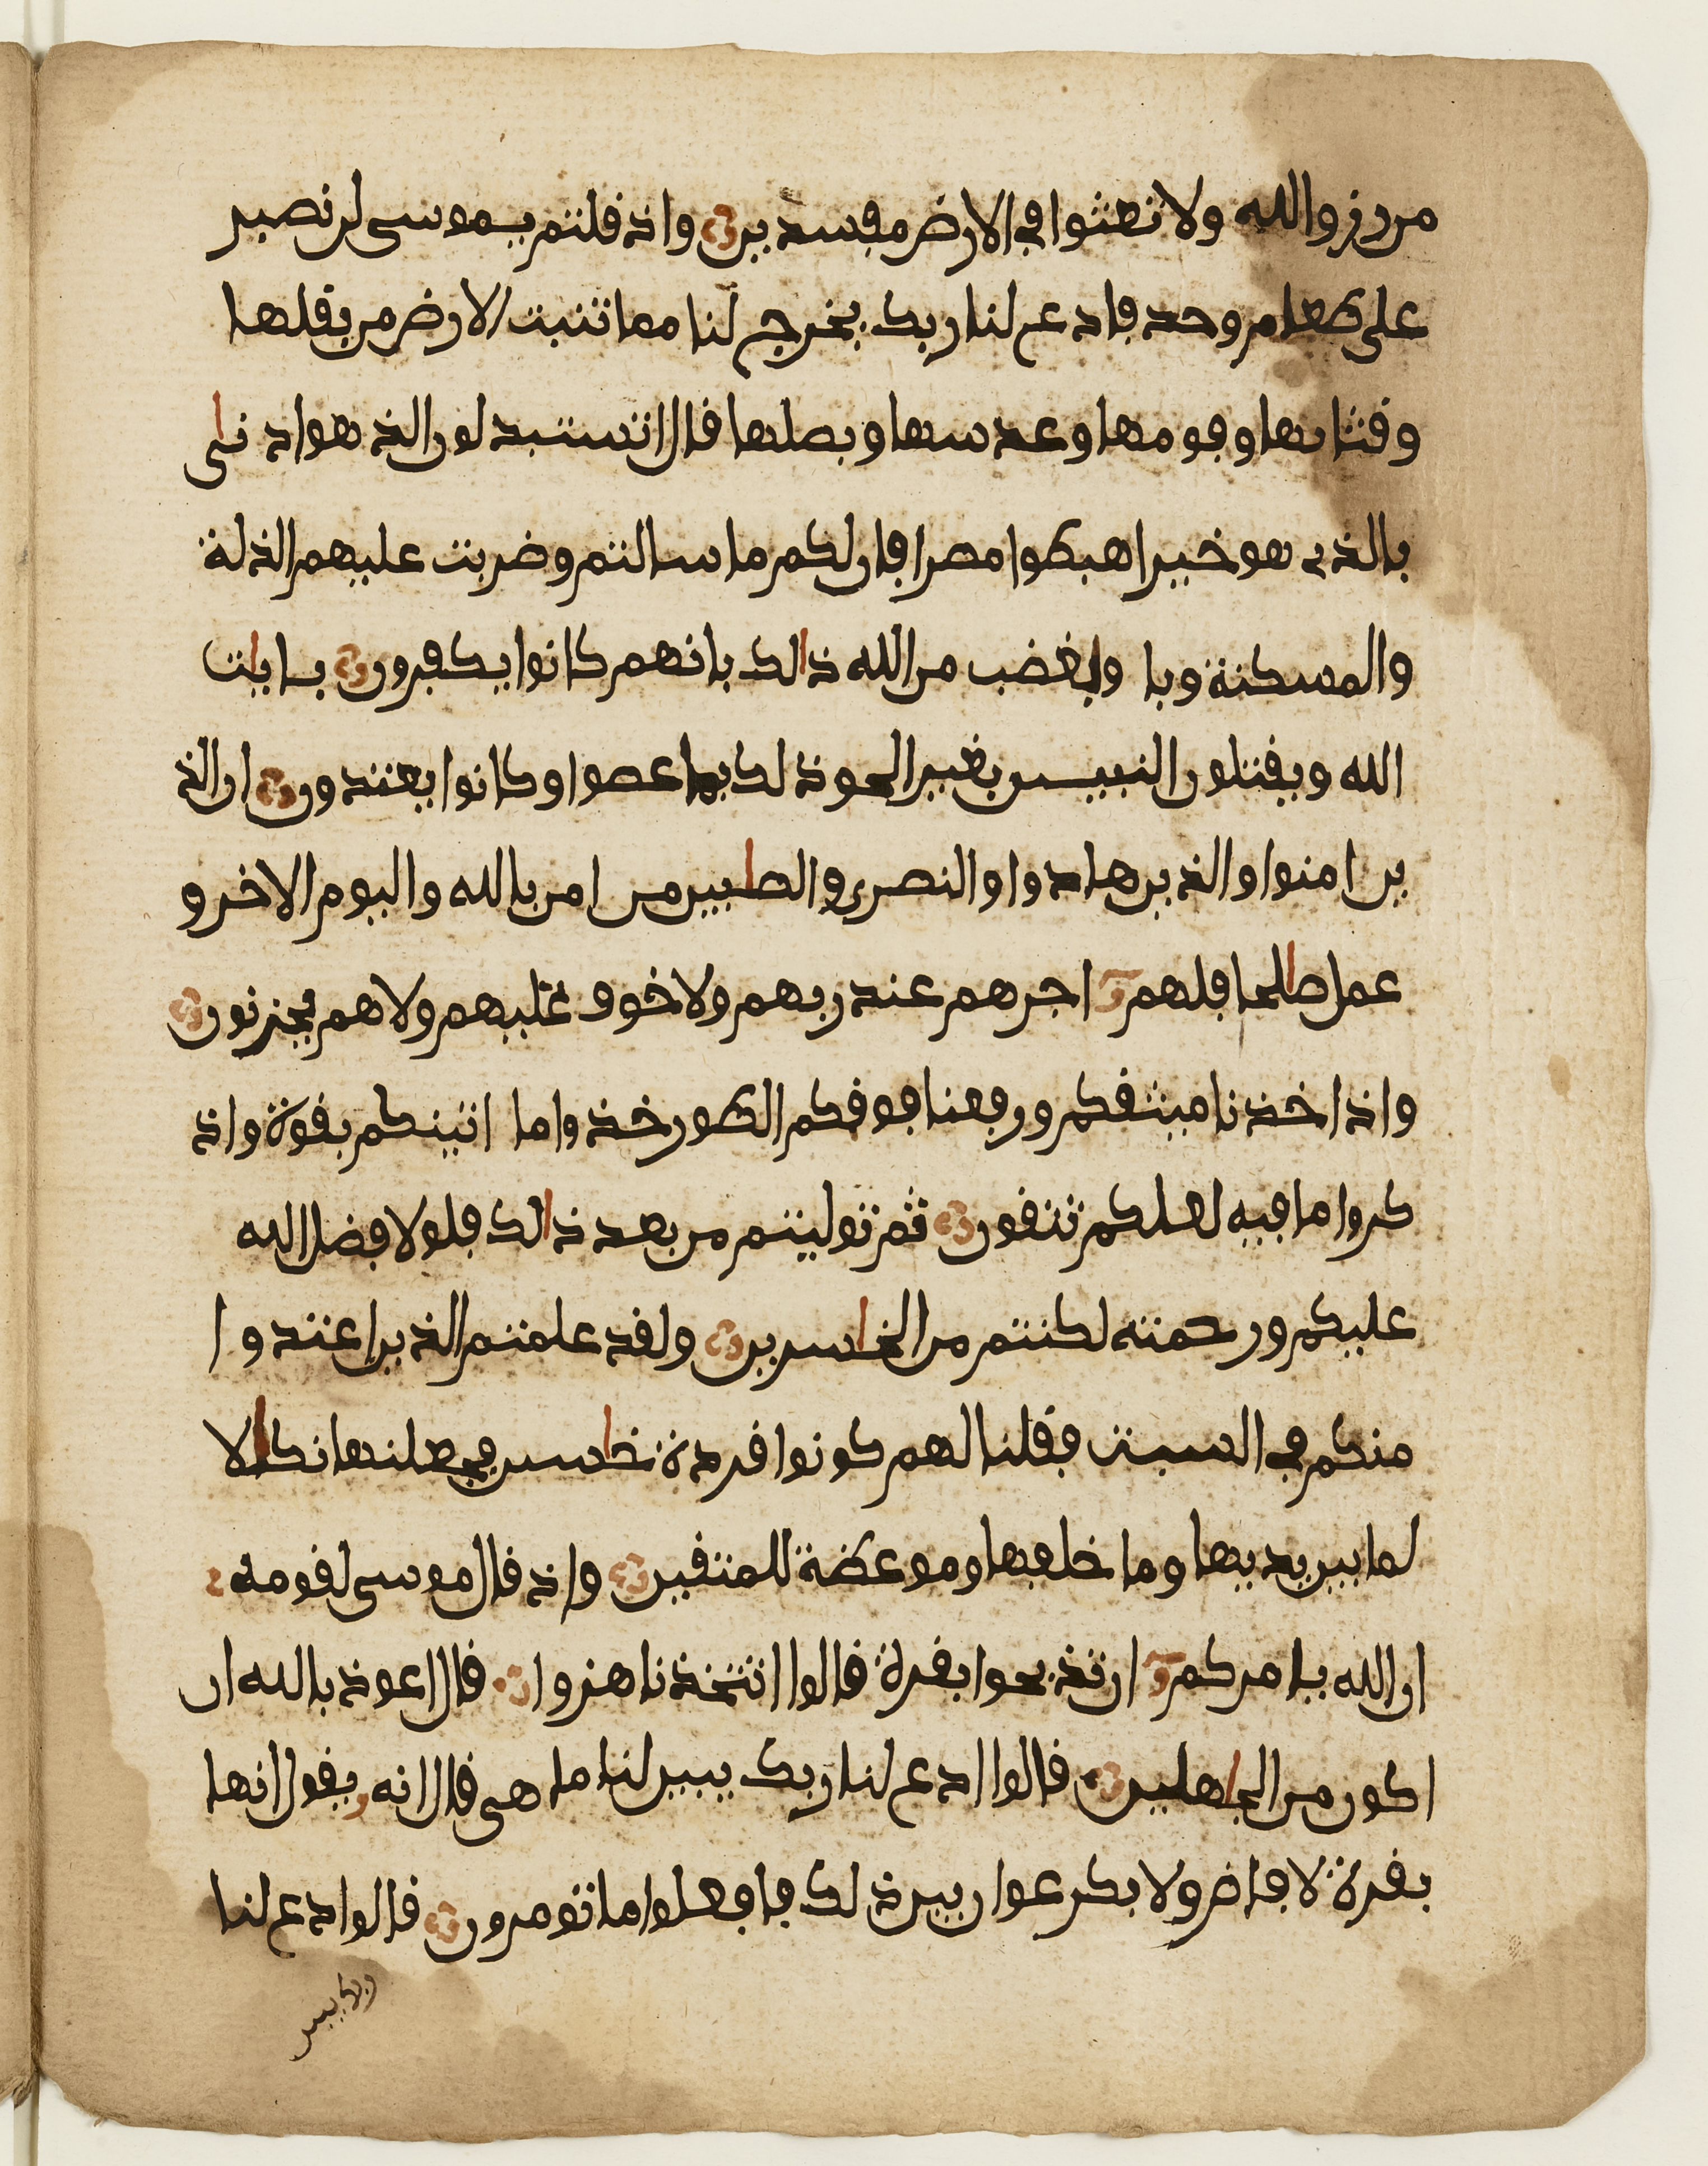 من رزق الله ولا تعثوا في الارض مفسدين واذ قلتم يموسى لن نصبر
على طعام وحد فادع لنا ربك يخرج لنا مما تنبت الارض من بقلها
وقثائها وفومها وعدسها وبصلها قال اتستبدلون الذ هو ادنى
بالذي هو خير اهبطوا مصرا فان لكم ما سالتم وضربت عليهم الذلة
والمسكنة وبا و بغضب من الله ذالك بانهم كانوا يكفرون بايات
الله ويقتلون النبيين بغير الحق ذلك بما عصوا وكانوا يعتدون ان الذ
ين امنوا والذين هادوا والنصرى والصابين من امن بالله واليوم الاخر و
عمل صالحا فلهم اجرهم عند ربهم ولا خوف عليهم ولا هم يحزنون
واذ اخذنا ميثقكم ورفعنا فوقكم الطور خذوا ما اتينكم بقوة واذ
كروا ما فيه لعلكم تتقون ثم توليتم من بعد ذالك فلولا فضل الله
عليكم ورحمته لكنتم من الخاسرين ولقد علمتم الذين اعتدوا
منكم في السبت فقلنا لهم كونوا قردة خاسين فجعلنها نكالا
لما بين يديها وما خلفها وموعظة للمتقين واذ قال موسى لقومه
ان الله يامركم ان تذبحوا بقرة قالوا اتتخذنا هزوا قال اعوذ بالله ان
اكون من الجاهلين قالوا ادع لنا ربك يبين لنا ما هي قال انه يقول انها
بقرة لا فارض ولا بكر عوان بين ذلك فافعلوا ما تومرون قالوا ادع لنا
ربك يبين